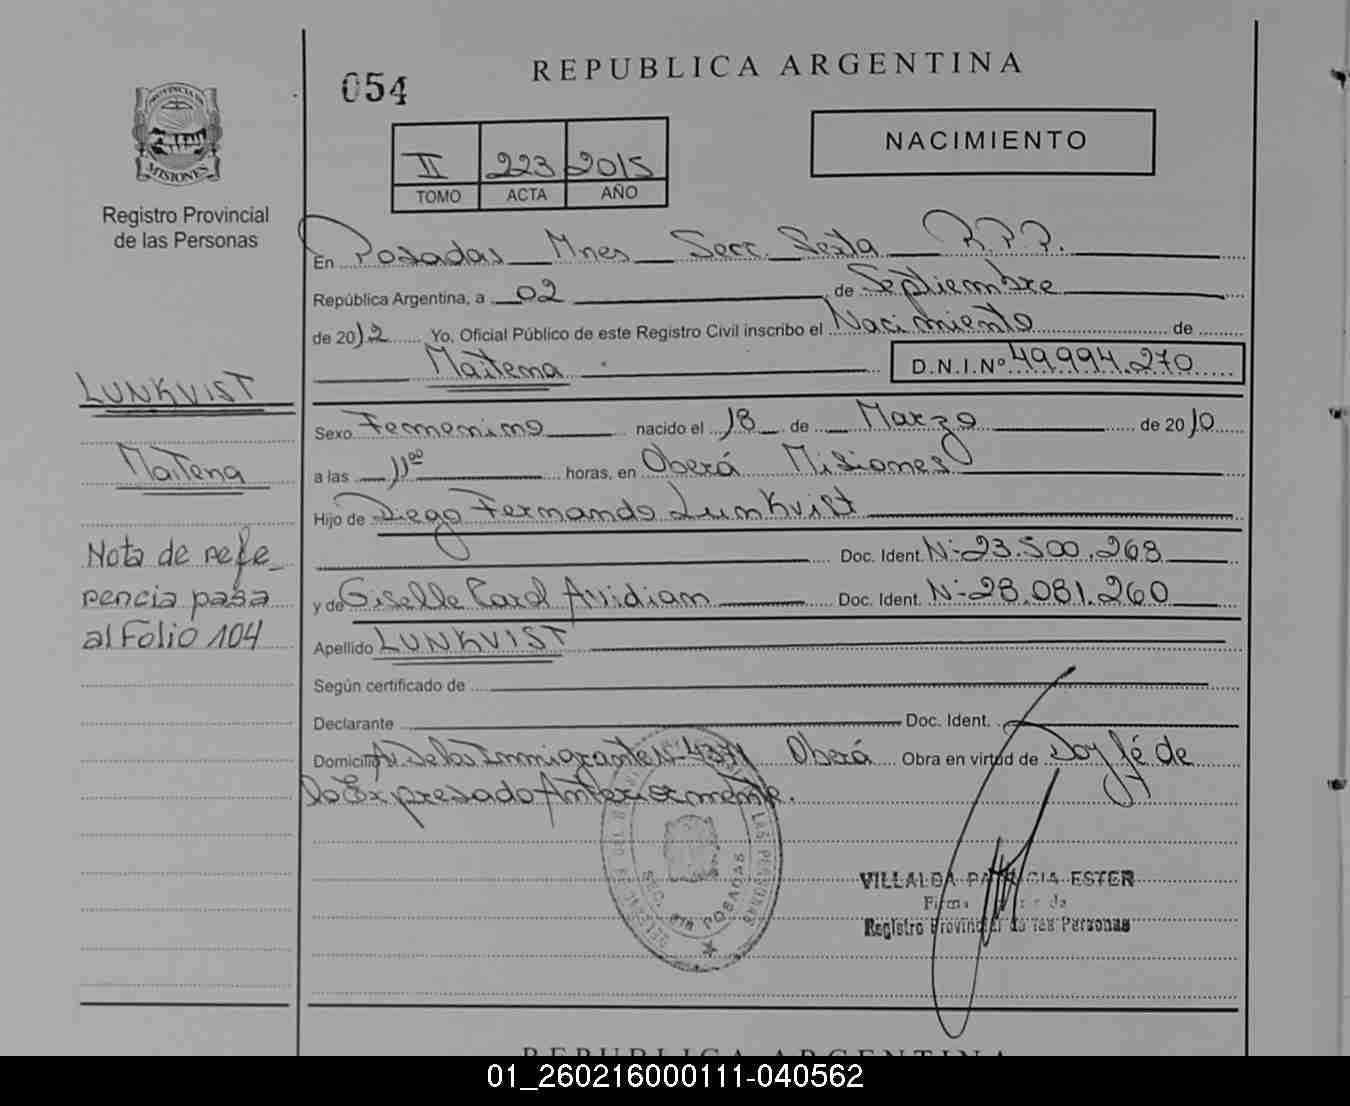 REPUBLICA ARGENTINA
054
NACIMIENTO
II 223 2015
TOMO ACTA AÑO
PROVINCIA DE
MISIONES
Registro Provincial
de las Personas
En Posadas Mnes Secc. Sexta R.P.P.
República Argentina, a 02 de Septiembre
de 2012 Yo, Oficial Público de este Registro Civil inscribo el Nacimiento de
Maitena D.N.I.Nº 49.994.270
Sexo Femenino nacido el 18 de Marzo de 2010
a las 11⁰⁰ horas, en Oberá Misiones
Hijo de Diego Fernando Lunkvist
Doc. Ident. Nº 23.500.268
y de Giselle Carol Avidiam Doc. Ident. Nº 28.081.260
Apellido LUNKVIST
Según certificado de
Declarante Doc. Ident.
Domicilio Av. de los Inmigrantes Oberá Obra en virtud de Doy fé de
lo Expresado Anteriormente.
LUNKVIST
Maitena
Nota de refe_
rencia pasa
al Folio 104
SEC. 6ta POSADAS
LAS PERSONAS
VILLALBA ESTER
Firma
Registro Provincial de las Personas
REPUBLICA ARGENTINA
01_260216000111-040562